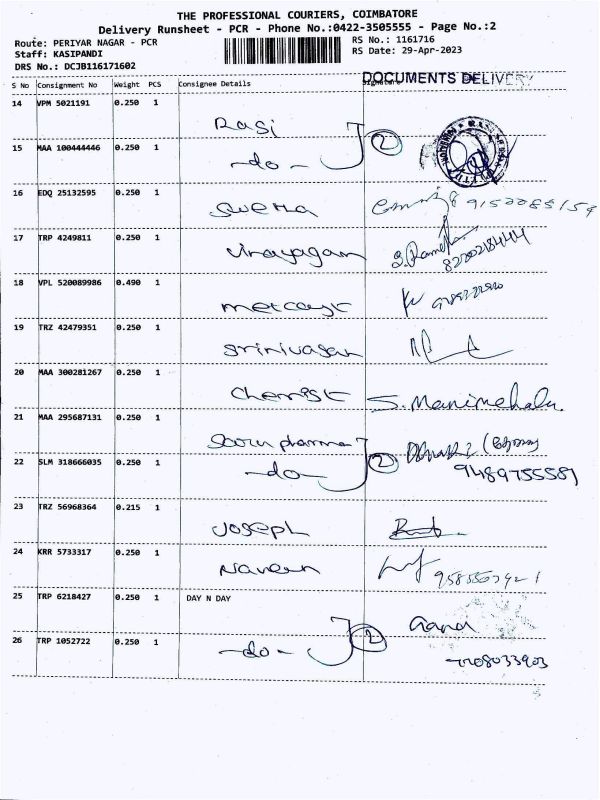 THE PROFESSIONAL COURIERS, COIMBATORE
Delivery Runsheet - PCR - Phone No.:0422-3505555 - Page No.:2
Route: PERIYAR NAGAR - PCR RS No.: 1161716
Staff: KASIPANDI RS Date: 29-Apr-2023
DRS No.: DCJB116171602
DOCUMENTS DELIVERY
S No Consignment No Weight PCS Consignee Details Signature
14 VPM 5021191 0.250 1 Rasi
15 MAA 100444446 0.250 1 -do- 2
16 EDQ 25132595 0.250 1 Swetha
17 TRP 4249811 0.250 1 Vinayagam
18 VPL 520089986 0.490 1
19 TRZ 42479351 0.250 1 Srinivasan
20 MAA 300281267 0.250 1 Chemist S. Manimehala
21 MAA 295687131 0.250 1 pharma
22 SLM 318666035 0.250 1 -do- 2 9489755589
23 TRZ 56968364 0.215 1 Joseph
24 KRR 5733317 0.250 1 Naveen
25 TRP 6218427 0.250 1 DAY N DAY
26 TRP 1052722 0.250 1 -do- 2